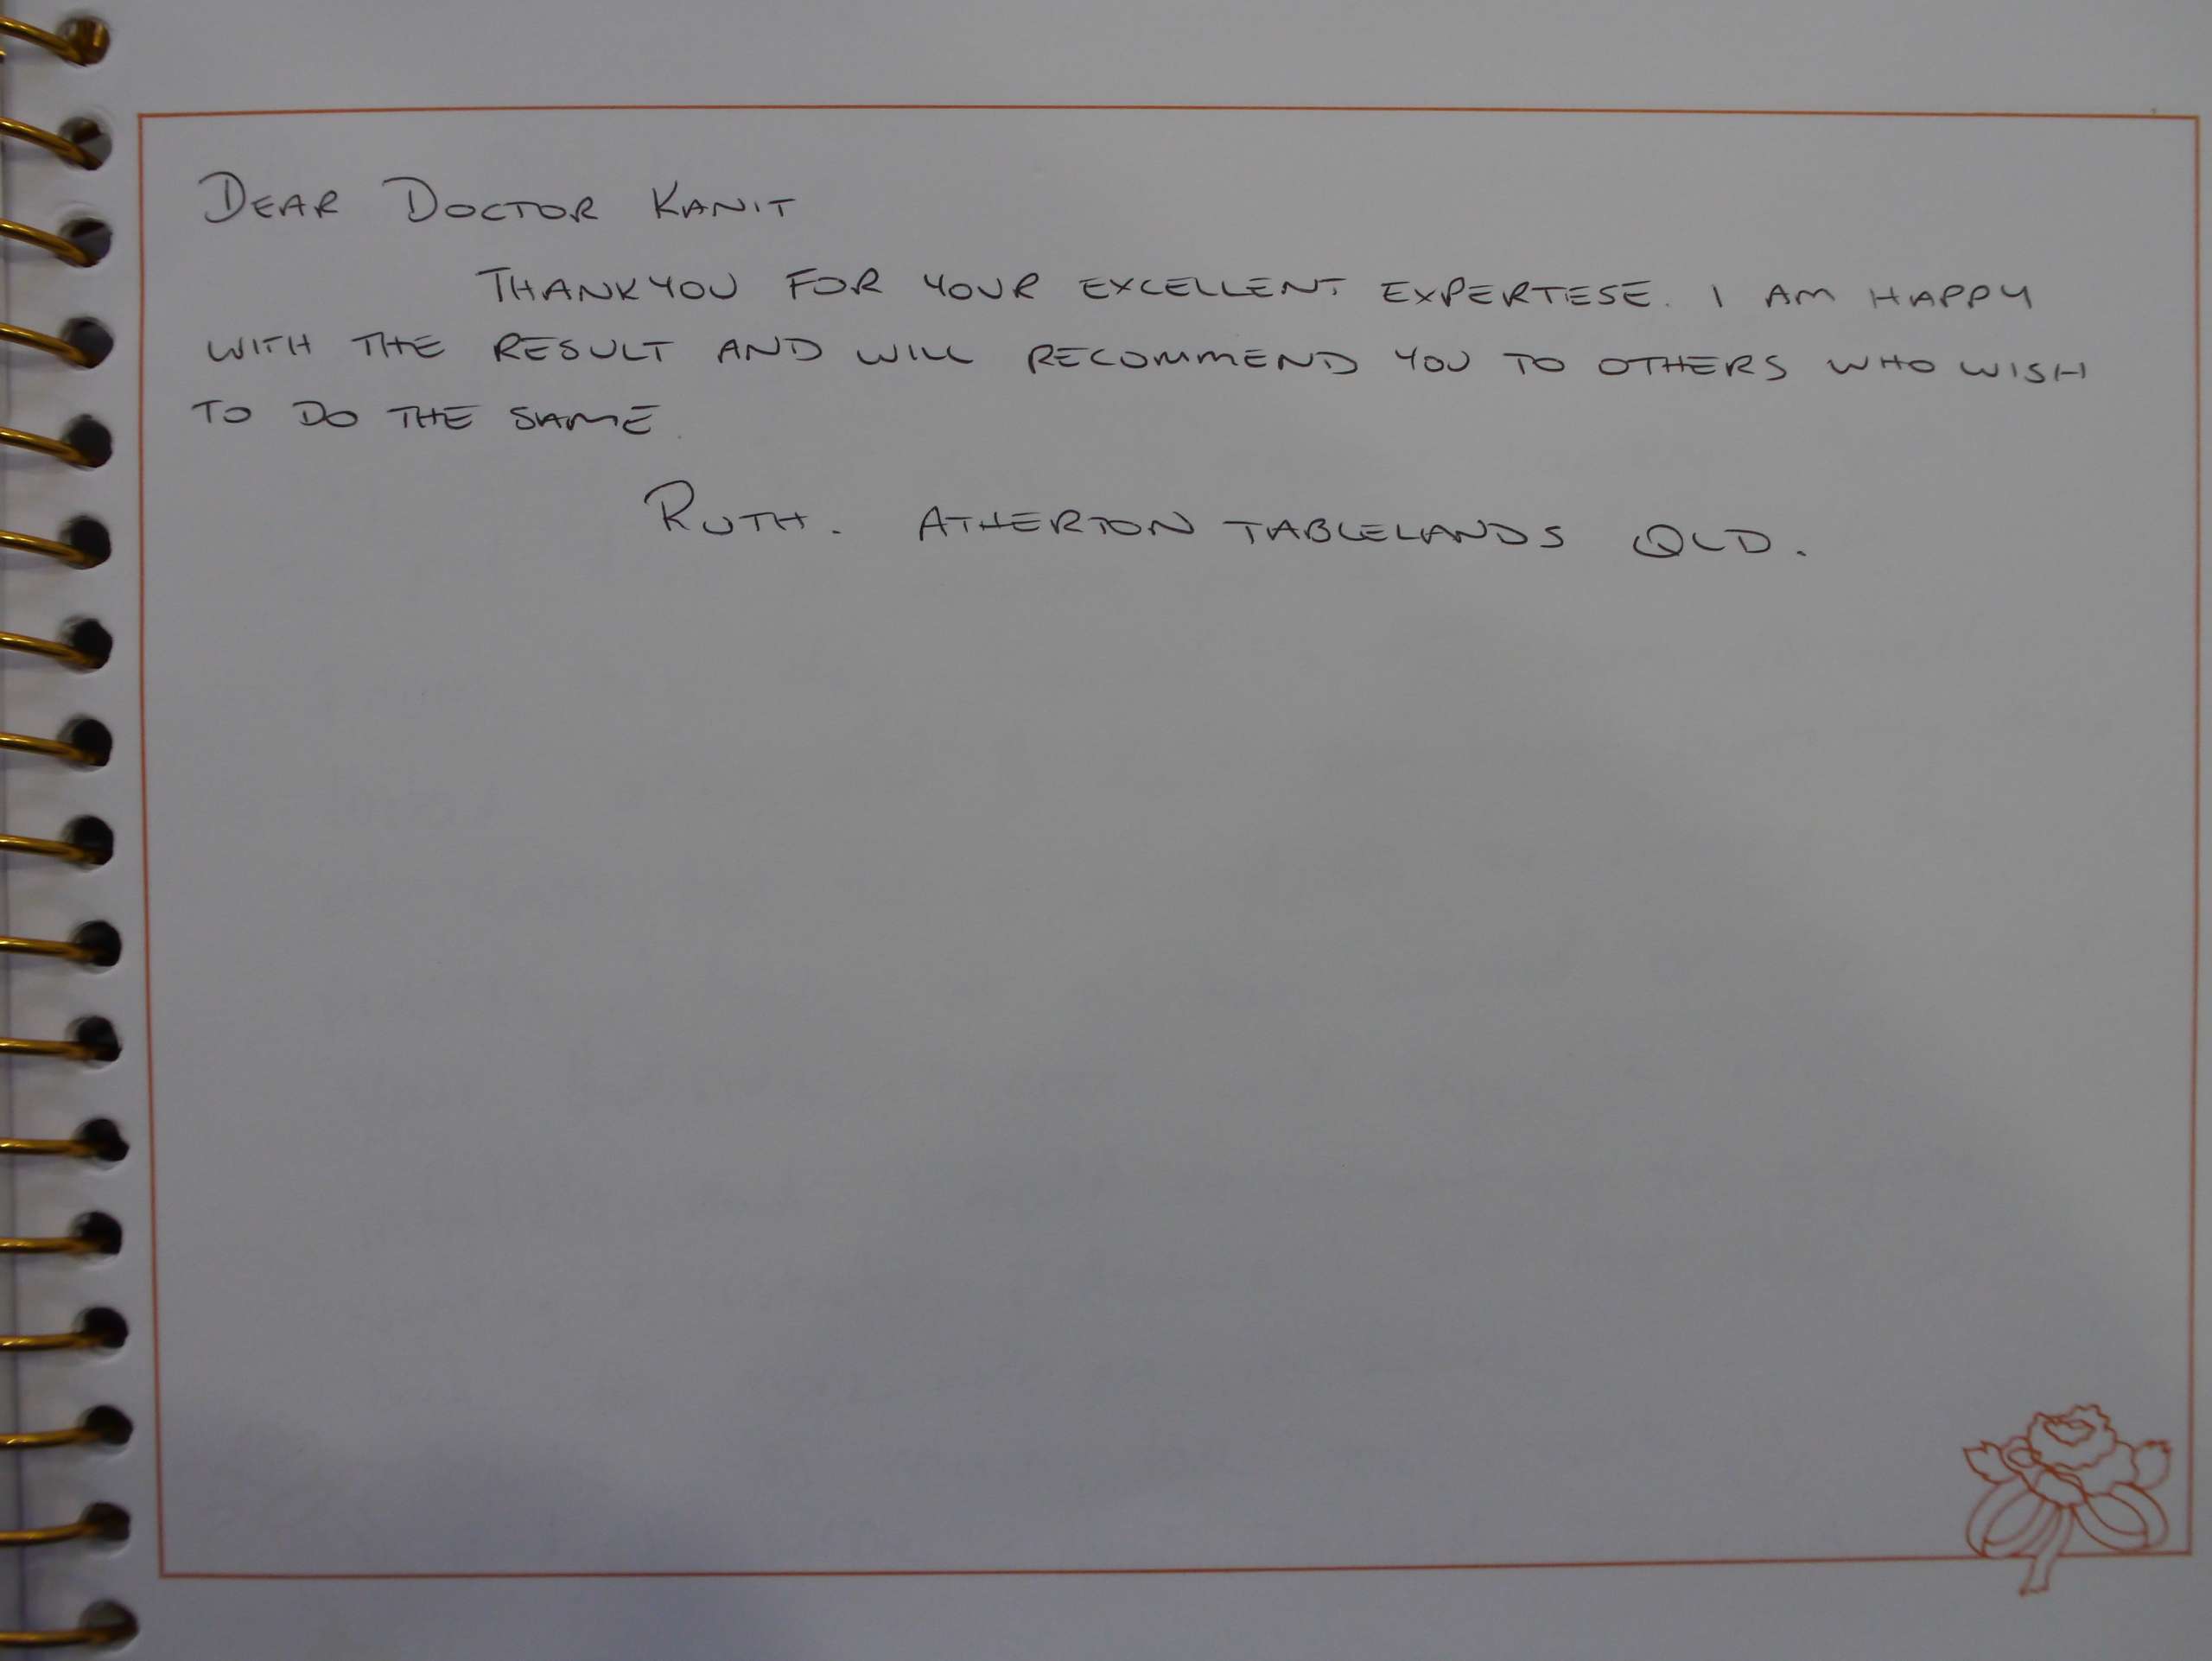 DEAR DOCTOR KANIT
THANKYOU FOR YOUR EXCELLENT EXPERTESE. I AM HAPPY
WITH THE RESULT AND WILL RECOMMEND YOU TO OTHERS WHO WISH
TO DO THE SAME.
RUTH. ATHERTON TABLELANDS QLD.